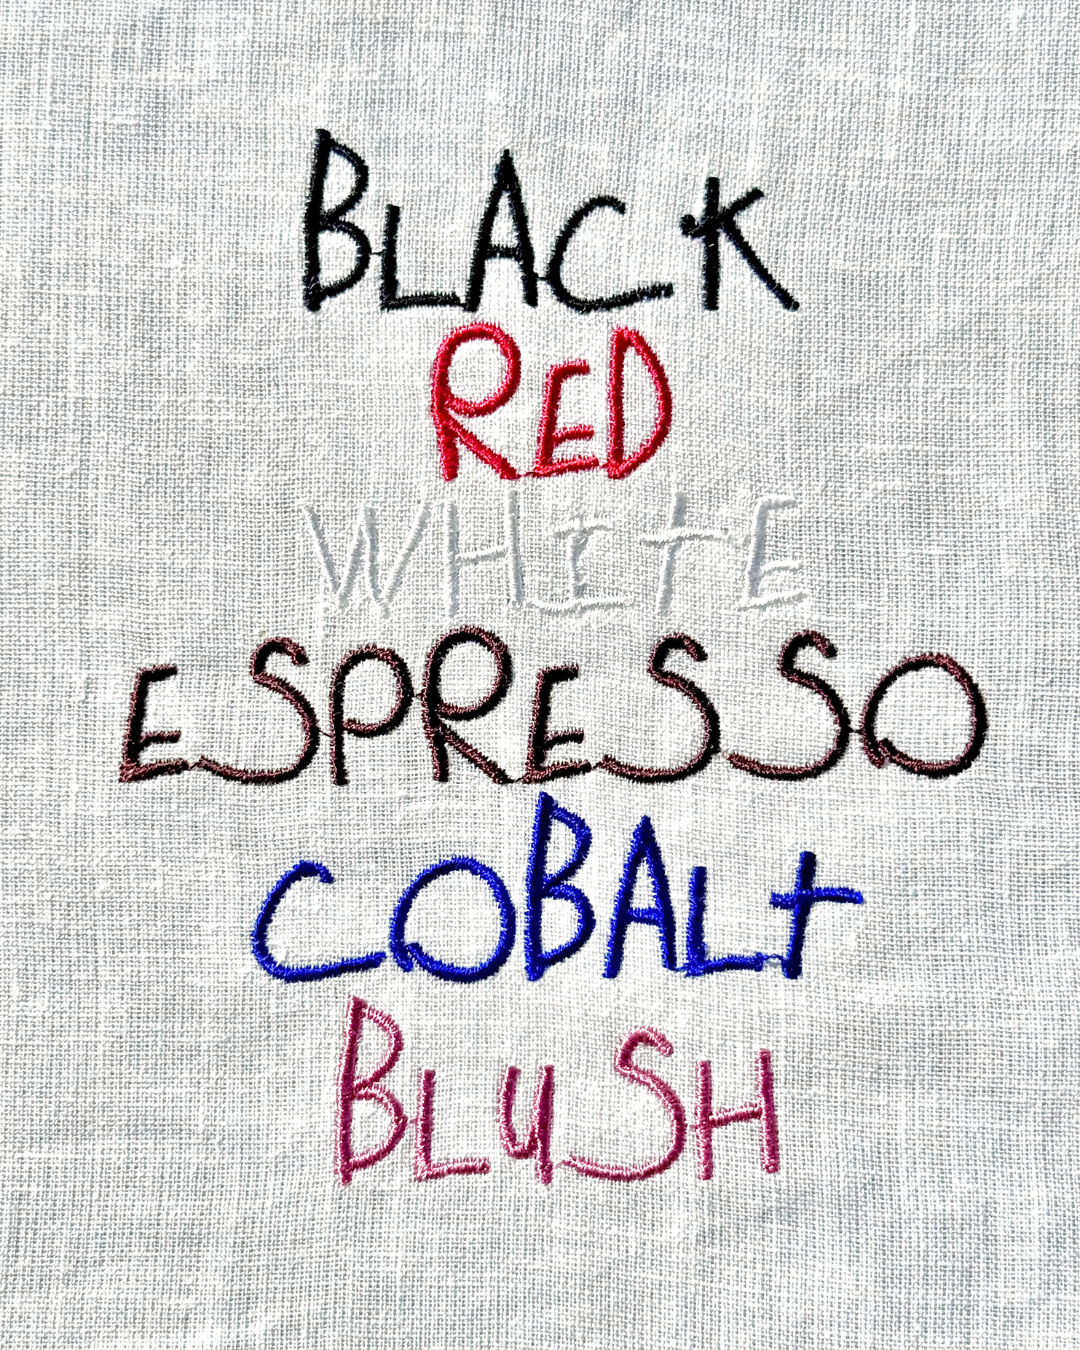 BLACK
RED
WHITE
ESPRESSO
COBALT
BLUSH